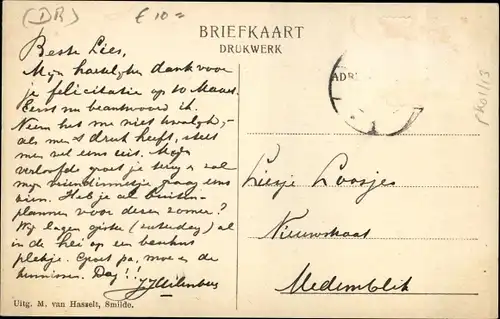 (DR) £ 10 =
BRIEFKAART
DRUKWERK
ADR
Beste Lies,
Mijn hartelijke dank voor
je felicitatie op 10 Maart.
Eerst nu beantwoord ik.
Neem het me niet kwalijk,-
als men 't druk heeft, stelt
men wel eens uit. Mijn
verloofde groet je terug & zal
mijn vriendinnetje graag eens
zien. Heb je al buiten-
plannen voor dezen zomer?
Wij lagen gister (zaterdag) al
in de hei op een
plekje. Groet pa, moe en de
kennissen. Dag!
Liesje Loosjes
Nieuwstraat
Medemblik
Uitg. M. van Hasselt, Smilde.